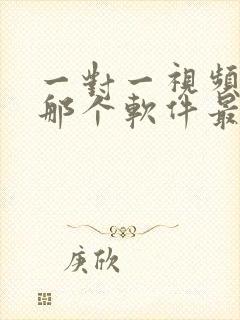 一對一視頻
那个軟件最
庚欣